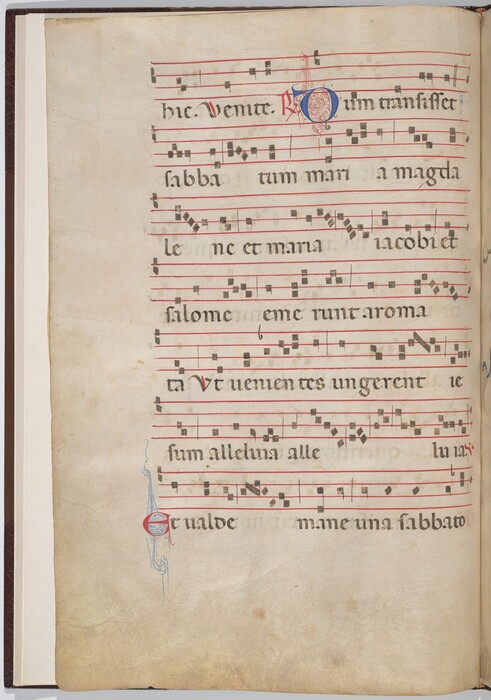 hic. Venite. R Dum transisset
sabba tum mari a magda
le ne et maria iacobi et
salome eme runt aroma
ta Vt uenientes ungerent ie
sum alleluia alle lu ia. V
Et ualde mane una sabbato